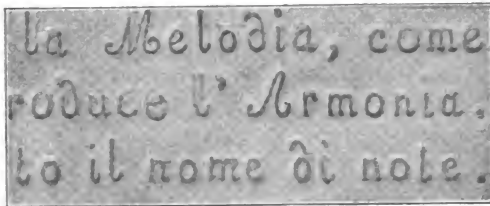 la Melodia, come
roduce l' Armonia.
to il nome di note.